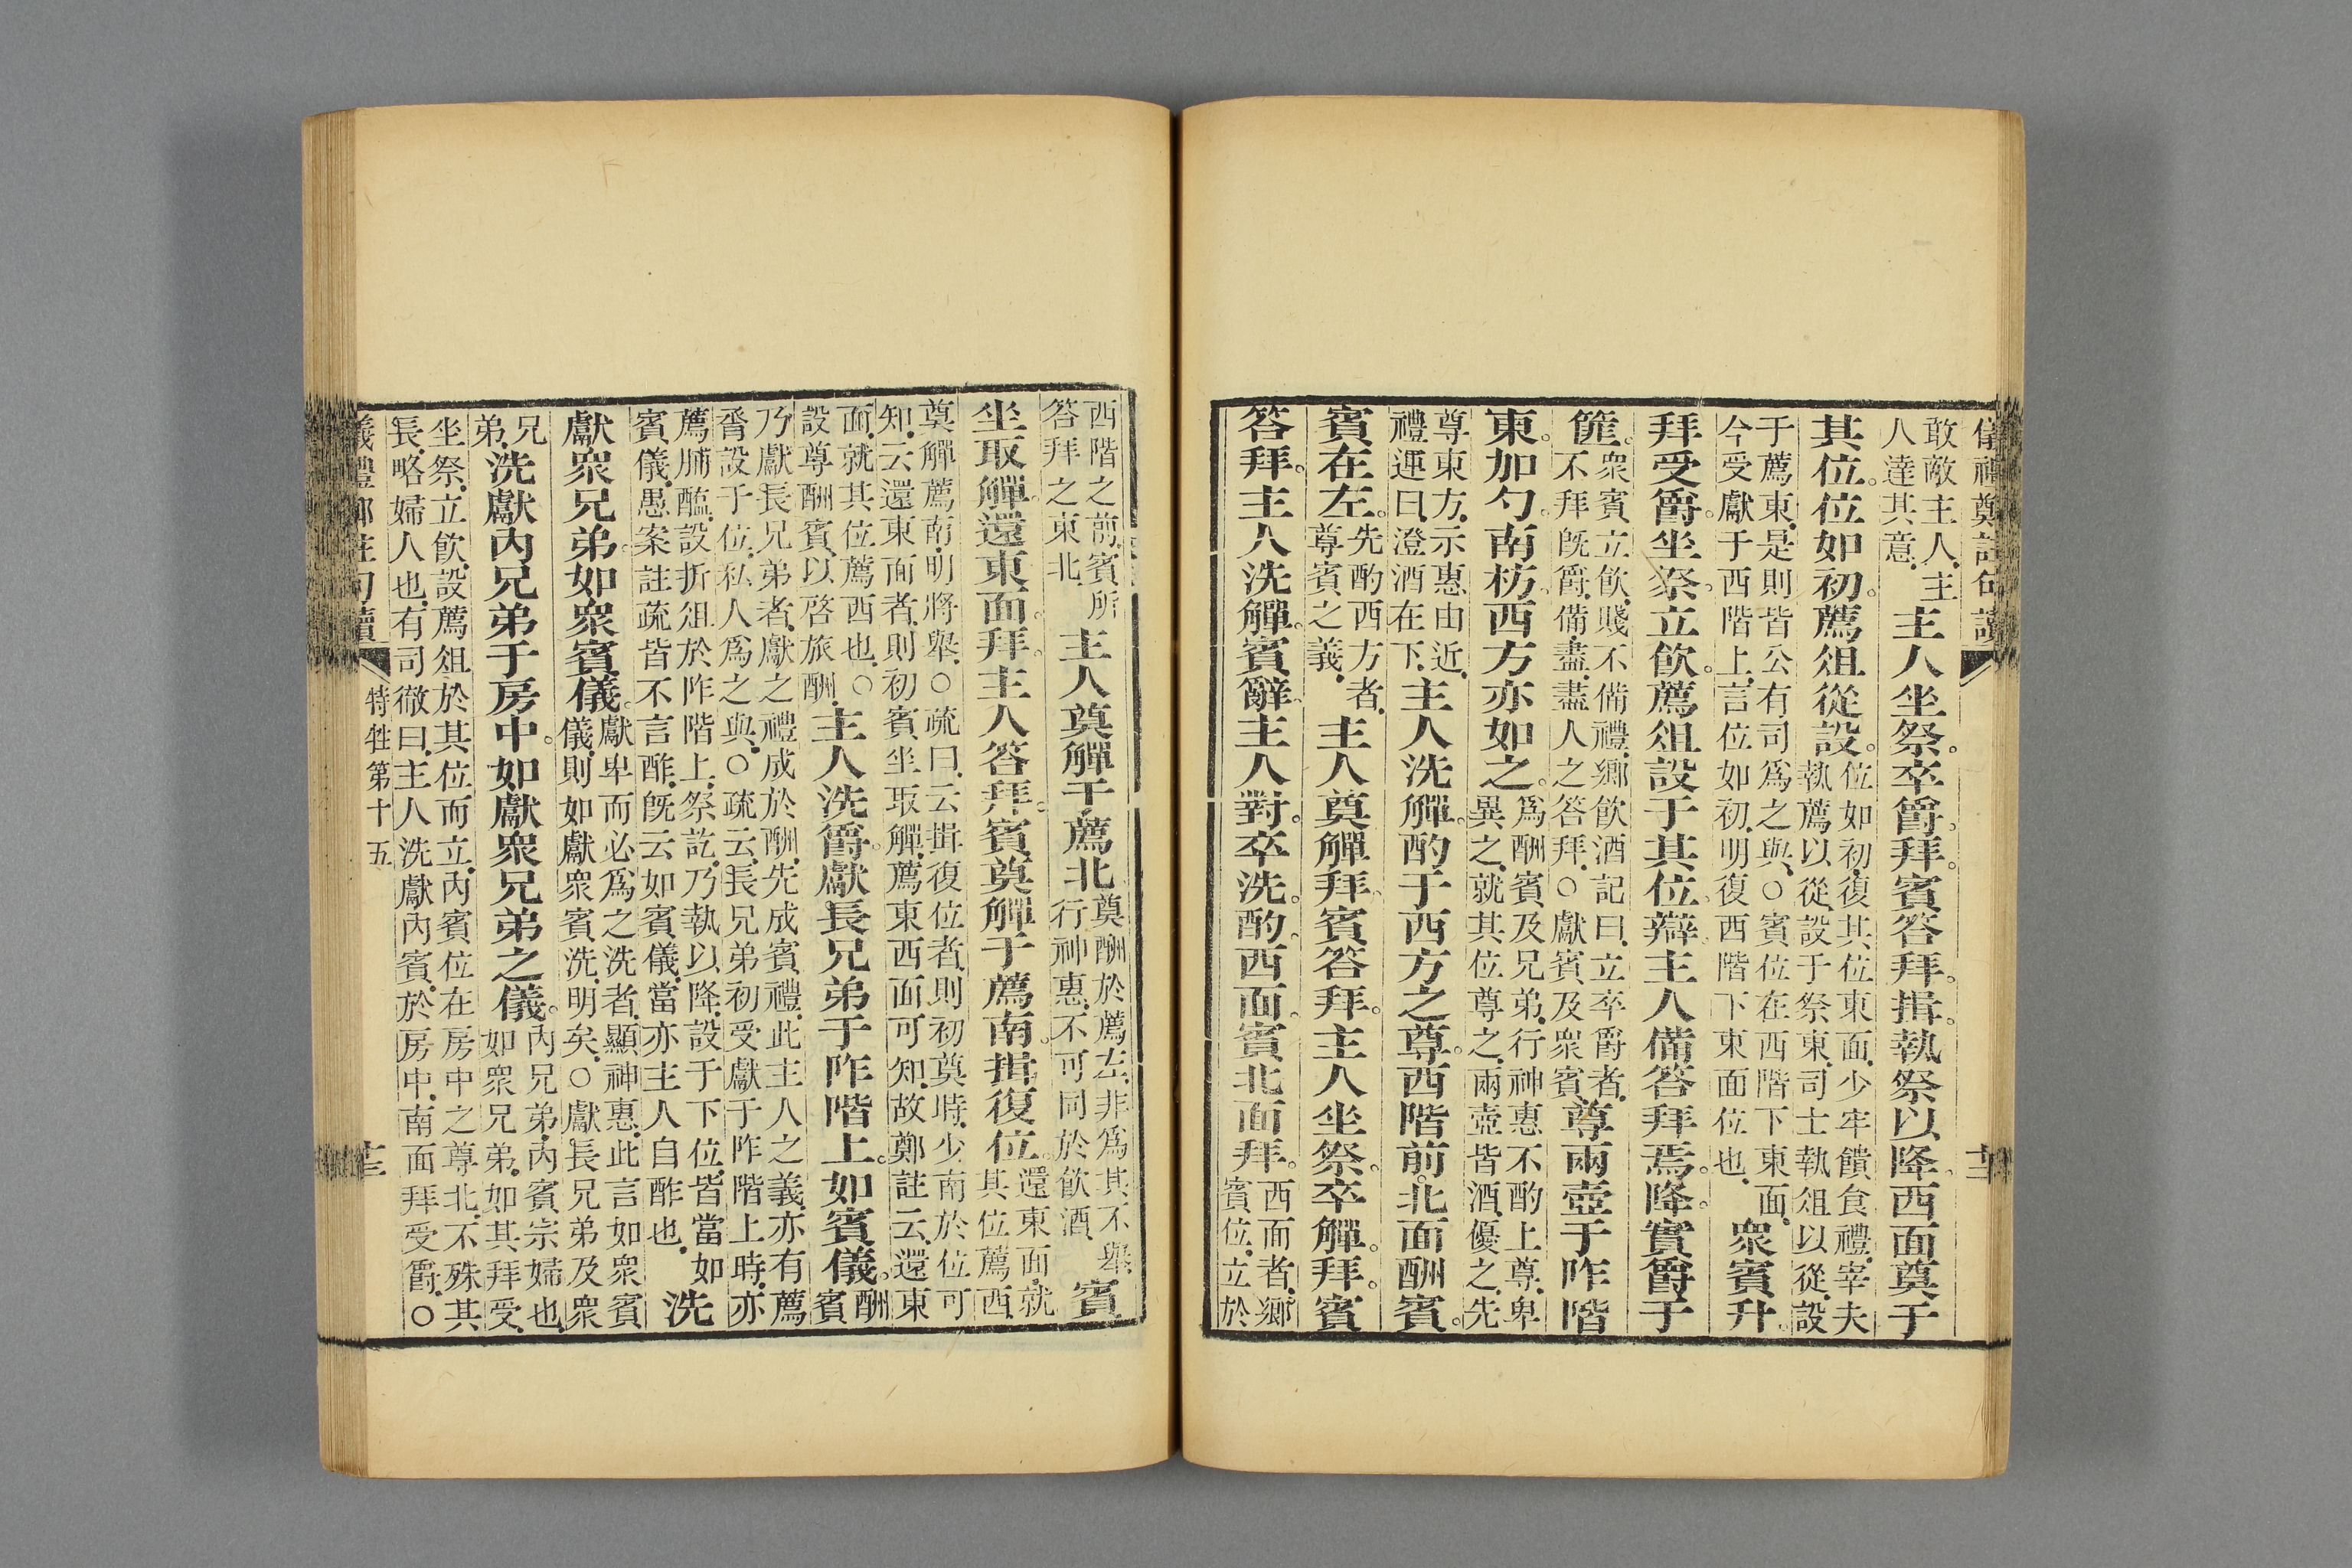 儀禮鄭註句讀
敢敵主人.主
人達其意.
主人坐祭。卒爵。拜。賓答拜。揖。執祭以降。西面奠于
其位。位如初。薦俎從設。
位如初.復其位東面.少牢饋食禮.宰夫
執薦以從.設于祭東.司士執俎以從.設
于薦東.是則皆公有司爲之與.○賓位在西階下東面.
今受獻于西階上.言位如初.明復西階下東面位也.
衆賓升。
拜受爵。坐祭。立飲。薦俎設于其位。辯。主人備答拜焉。降。實爵于
篚。
衆賓立飲.賤不備禮.鄉飲酒記曰.立卒爵者.
不拜旣爵.備.盡.盡人之答拜.○獻賓及衆賓
尊兩壺于阼階
東。加勺。南枋。西方亦如之。
爲酬賓及兄弟.行神惠不酌上尊.卑
異之.就其位尊之.兩壺皆酒.優之.先
尊東方.示惠由近.
禮運曰.澄酒在下.
主人洗觶。酌于西方之尊。西階前。北面酬賓。
賓在左。
先酌西方者.
尊賓之義.
主人奠觶拜。賓答拜。主人坐祭。卒觶。拜。賓
答拜。主人洗觶。賓辭。主人對。卒洗。酌。西面。賓北面拜。
西面者.鄉
賓位.立於
西階之前.賓所
答拜之東北.
主人奠觶于薦北
奠酬於薦左.非爲其不舉.
行神惠.不可同於飲酒.
賓
坐取觶。還東面。拜。主人答拜。賓奠觶于薦南。揖復位。
還東面.就
其位薦西.
奠觶薦南.明將舉.○疏曰.云揖復位者.則初奠時.少南於位可
知.云還東面者.則初賓坐取觶.薦東西面可知.故鄭註云.還東
面.就其位薦西也.○
設尊酬賓.以啓旅酬.
主人洗爵。獻長兄弟于阼階上。如賓儀。
酬
賓
乃獻長兄弟者.獻之禮.成於酬.先成賓禮.此主人之義.亦有薦
脀設于位.私人爲之與.○疏云.長兄弟初受獻于阼階上時.亦
薦脯醢.設折俎於阼階上.祭訖.乃執以降.設于下位.皆當如
賓儀.愚案註疏皆不言酢.旣云如賓儀.當亦主人自酢也.
洗
獻衆兄弟。如衆賓儀。
獻卑而必爲之洗者.顯神惠.此言如衆賓
儀.則如獻衆賓洗.明矣.○獻長兄弟及衆
兄
弟.
洗獻內兄弟于房中。如獻衆兄弟之儀。
內兄弟.內賓宗婦也.
如衆兄弟.如其拜受.
坐祭.立飲.設薦俎於其位而立.內賓位在房中之尊北.不殊其
長.略婦人也.有司徹曰.主人洗獻內賓.於房中.南面拜受爵.○
儀禮鄭註句讀
特牲第十五